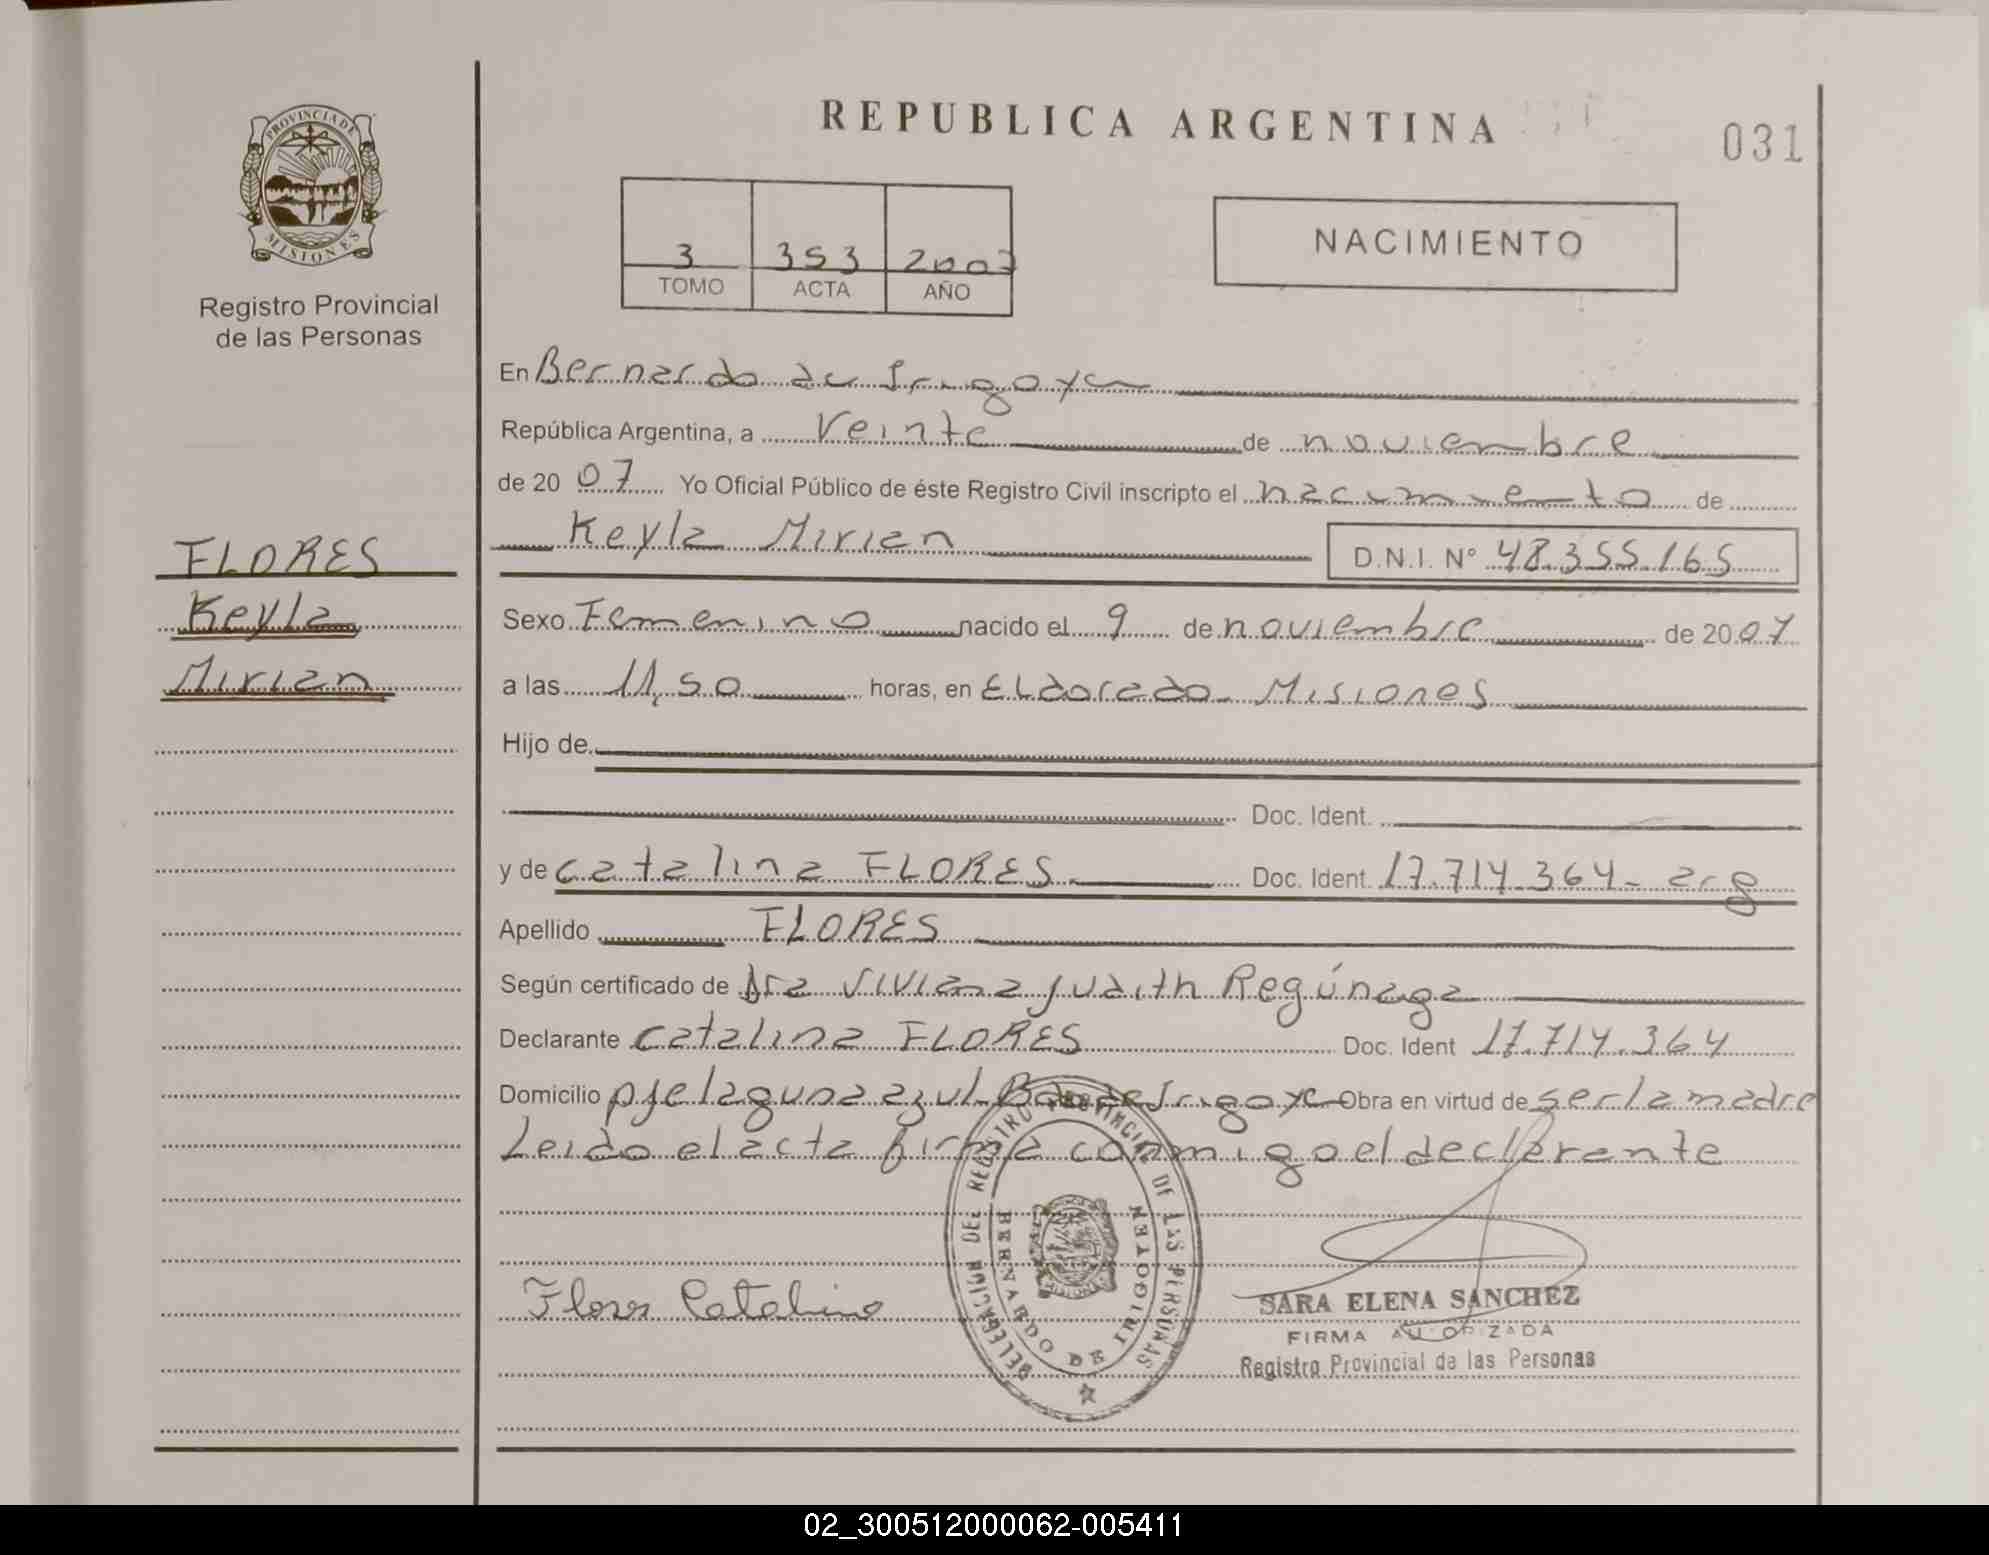 REPUBLICA ARGENTINA
031
PROVINCIA DE MISIONES
Registro Provincial
de las Personas
3 353 2007
TOMO ACTA AÑO
NACIMIENTO
FLORES
Keyla
Mirian
En Bernardo de Irigoyen
República Argentina, a Veinte de noviembre
de 20 07 Yo Oficial Público de éste Registro Civil inscripto el nacimiento de
Keyla Mirian D.N.I. Nº 48.355.165
Sexo Femenino nacido el 9 de noviembre de 20 07
a las 11,50 horas, en Eldorado - Misiones
Hijo de
Doc. Ident.
y de Catalina FLORES - Doc. Ident. 17.714.364 - arg
Apellido FLORES
Según certificado de Dra Viviana Judith Regúnaga
Declarante Catalina FLORES Doc. Ident 17.714.364
Domicilio pje laguna azul - Bdo de Irigoyen Obra en virtud de ser la madre
Leido el acta firma conmigo el declarante
Flores Catalina
DELEGACION DEL REGISTRO PROVINCIAL DE LAS PERSONAS
BERNARDO DE IRIGOYEN
SARA ELENA SANCHEZ
FIRMA AUTORIZADA
Registro Provincial de las Personas
02_300512000062-005411